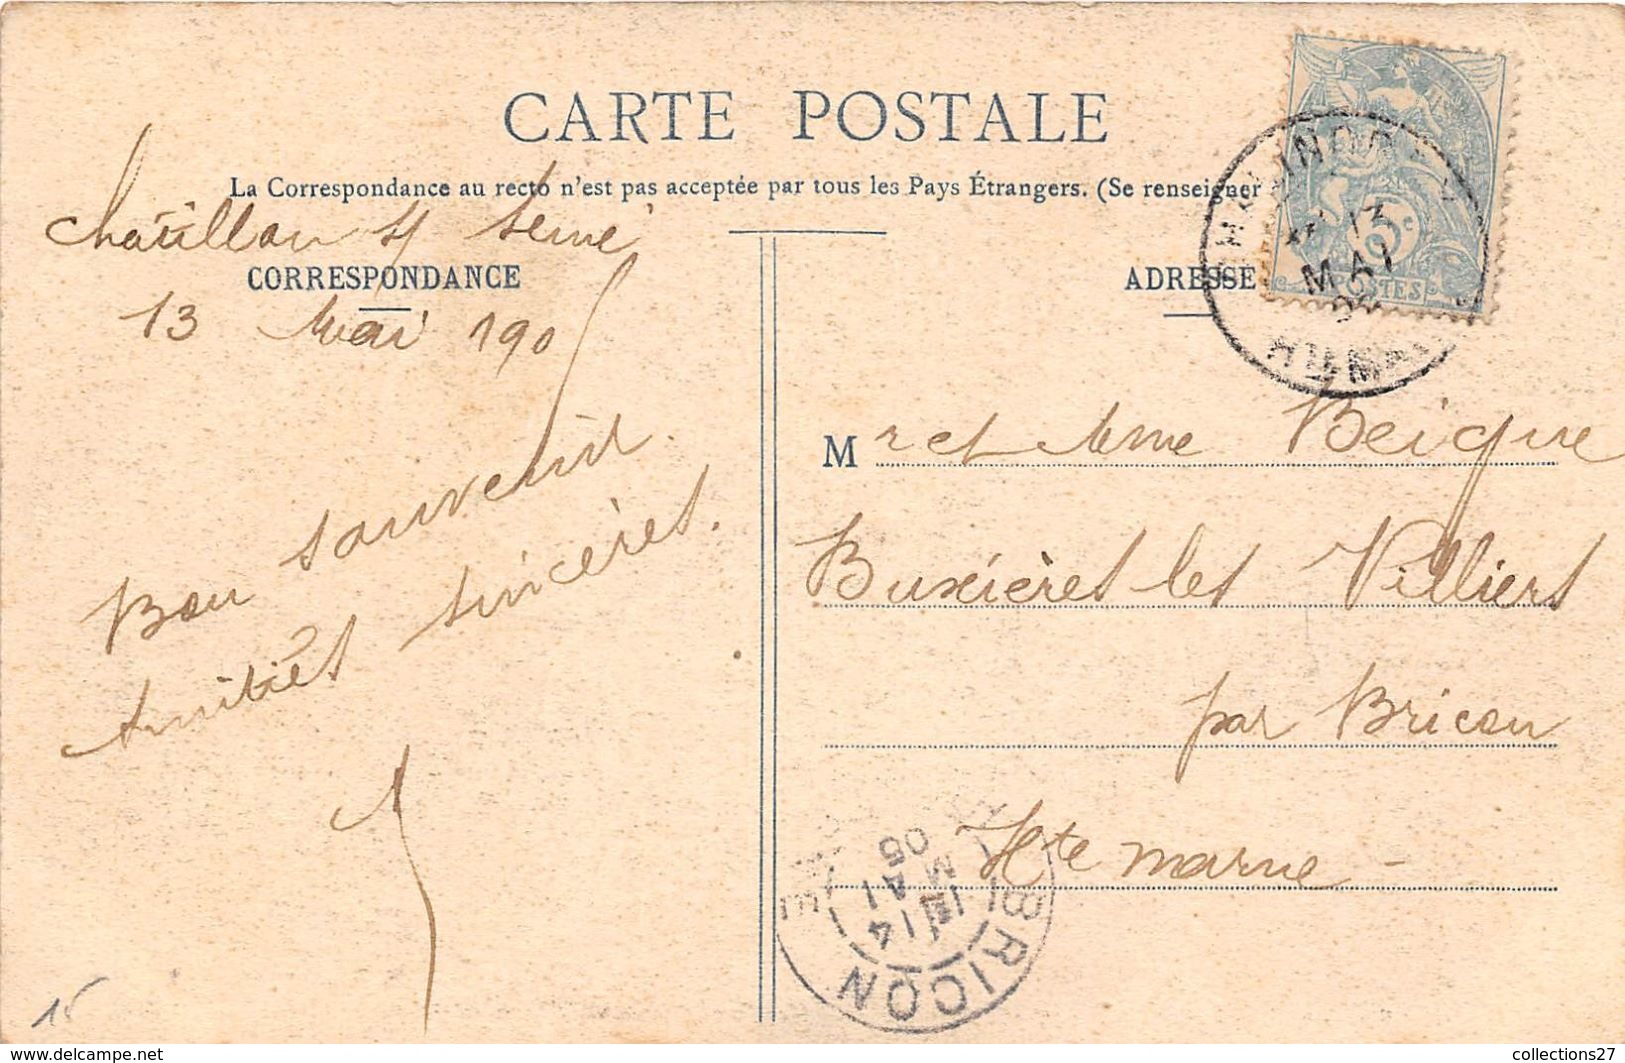 CARTE POSTALE
La Correspondance au recto n'est pas acceptée par tous les Pays Étrangers. (Se renseigner
CORRESPONDANCE
Chatillon s/ Seine
13 Mai 1905
Bon souvenir.
Amitiés sincères.
ADRESSE
Mr et Mme Beique
Buxières les Villiers
par Bricon
Hte Marne -
13
MAI
5c
POSTES
BRICON
14
MAI
05
15
www.delcampe.net
collections27